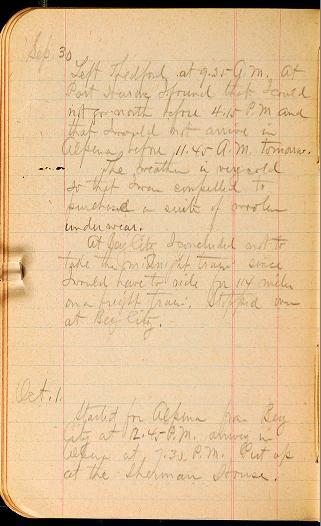 Sep. 30
Left Thedford at 9.25 A.M. At
Port Huron I found that I could
not go north before 4.15 P.M and
that I would not arrive in
Alpena before 11.45 A.M. tomorrow.
The weather is very cold
so that I was compelled to
purchase a suite of woolen
underwear.
At Bay City I concluded not to
take the midnight train since
I would have to ride for 114 miles
on a freight train. Stopped over
at Bay City.
Oct. 1.
Started for Alpena from Bay
City at 12.45 P.M. arriving in
Alpena at 7.30 P.M. Put up
at the Sherman House.